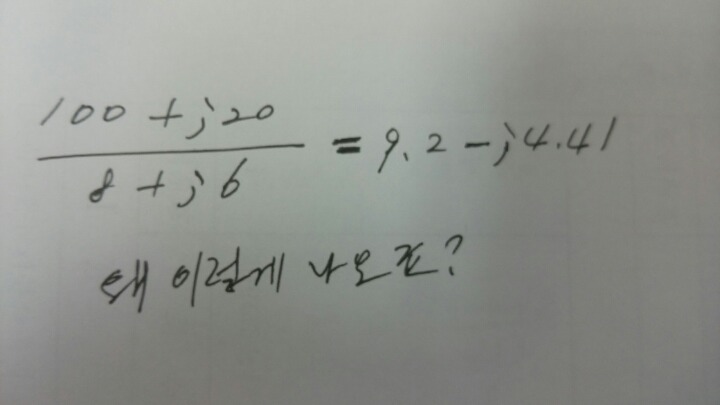 100 + j20
8 + j6
= 9.2 - j4.41
왜 이렇게 나오죠?